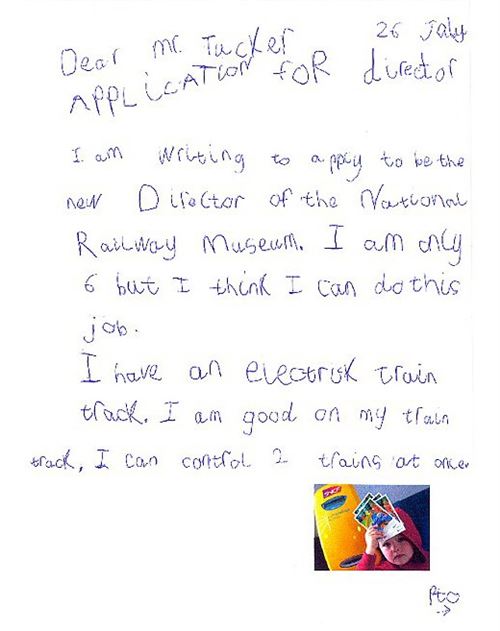 26 July
Dear Mr. Tucker
APPLiCATION foR director
I am writing to apply to be the
new Director of the National
Railway Museum. I am only
6 but I think I can do this
job.
I have an electrik train
track. I am good on my train
track, I can control 2 trains at once.
PtO